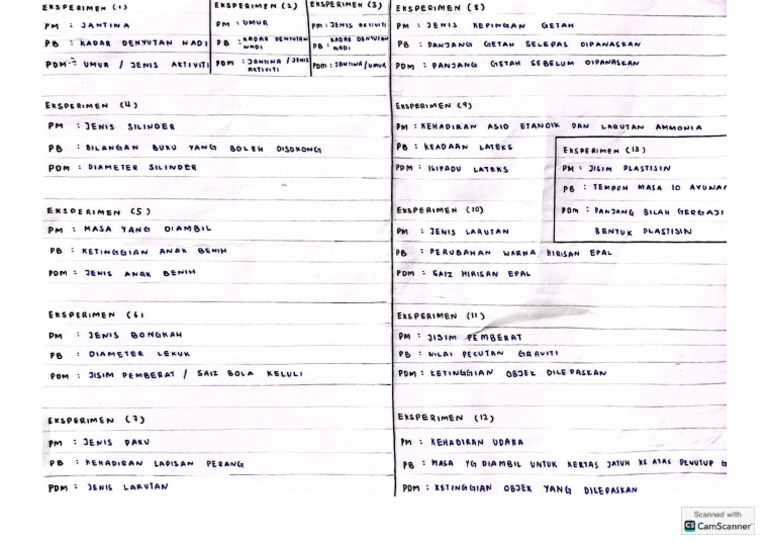 EKSPERIMEN (1)
PM : JANTINA
PB : KADAR DENYUTAN NADI
PDM : UMUR / JENIS AKTIVITI
EKSPERIMEN (2)
PM : UMUR
PB : KADAR DENYUTAN
NADI
PDM : JANTINA / JENIS
AKTIVITI
EKSPERIMEN (3)
PM : JENIS AKTIVITI
PB : KADAR DENYUTAN
NADI
PDM : JANTINA / UMUR
EKSPERIMEN (4)
PM : JENIS SILINDER
PB : BILANGAN BUKU YANG BOLEH DISOKONG
PDM : DIAMETER SILINDER
EKSPERIMEN (5)
PM : MASA YANG DIAMBIL
PB : KETINGGIAN ANAK BENIH
PDM : JENIS ANAK BENIH
EKSPERIMEN (6)
PM : JENIS BONGKAH
PB : DIAMETER LEKUK
PDM : JISIM PEMBERAT / SAIZ BOLA KELULI
EKSPERIMEN (7)
PM : JENIS PAKU
PB : KEHADIRAN LAPISAN PERANG
PDM : JENIS LARUTAN
EKSPERIMEN (8)
PM : JENIS KEPINGAN GETAH
PB : PANJANG GETAH SELEPAS DIPANASKAN
PDM : PANJANG GETAH SEBELUM DIPANASKAN
EKSPERIMEN (9)
PM : KEHADIRAN ASID ETANOIK DAN LARUTAN AMMONIA
PB : KEADAAN LATEKS
PDM : ISIPADU LATEKS
EKSPERIMEN (10)
PM : JENIS LARUTAN
PB : PERUBAHAN WARNA HIRISAN EPAL
PDM : SAIZ HIRISAN EPAL
EKSPERIMEN (13)
PM : JISIM PLASTISIN
PB : TEMPOH MASA 10 AYUNAN
PDM : PANJANG BILAH GERGAJI
BENTUK PLASTISIN
EKSPERIMEN (11)
PM : JISIM PEMBERAT
PB : NILAI PECUTAN GRAVITI
PDM : KETINGGIAN OBJEK DILEPASKAN
EKSPERIMEN (12)
PM : KEHADIRAN UDARA
PB : MASA YG DIAMBIL UNTUK KERTAS JATUH KE ATAS PENUTUP
PDM : KETINGGIAN OBJEK YANG DILEPASKAN
Scanned with
CS CamScanner